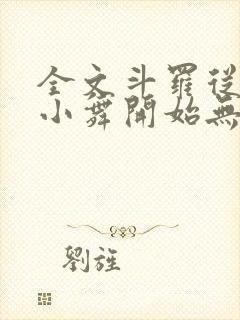 全文斗羅從
小舞開始無
劉旌